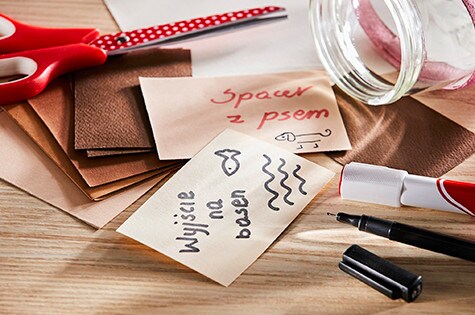 Spacer
z psem
Wyjście
na
basen